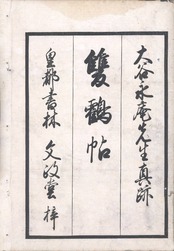 大谷永庵先生真跡
雙鶴帖
皇都書林 文政堂梓